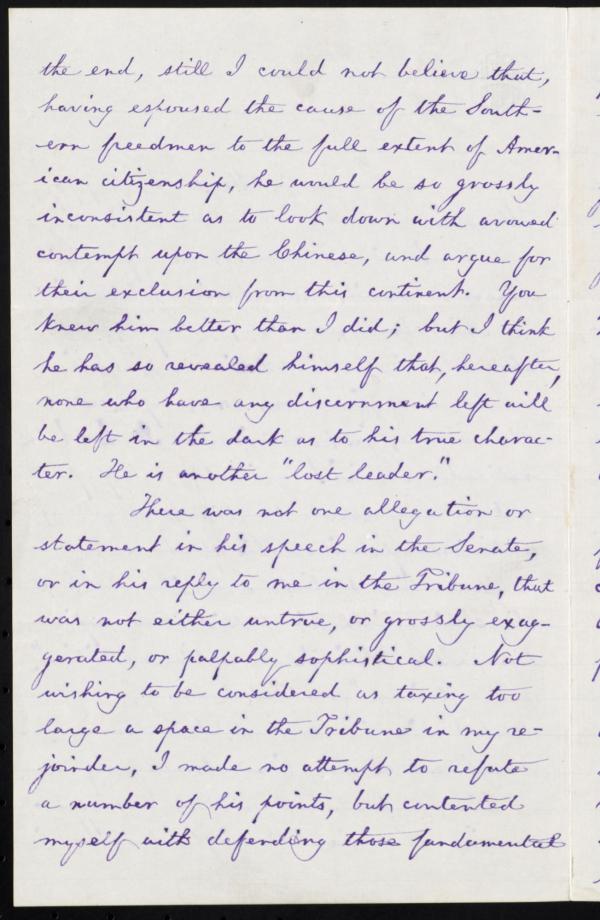 the end, still I could not believe that,
having espoused the cause of the South-
ern freedmen to the full extent of Amer-
ican citizenship, he would be so grossly
inconsistent as to look down with avowed
contempt upon the Chinese, and argue for
their exclusion from this continent. You
knew him better than I did; but I think
he has so revealed himself that, hereafter,
none who have any discernment left will
be left in the dark as to his true charac-
ter. He is another "lost leader."
There was not one allegation or
statement in his speech in the Senate,
or in his reply to me in the Tribune, that
was not either untrue, or grossly exag-
gerated, or palpably sophistical. Not
wishing to be considered as taxing too
large a space in the Tribune in my re-
joinder, I made no attempt to refute
a number of his points, but contented
myself with defending those fundamental